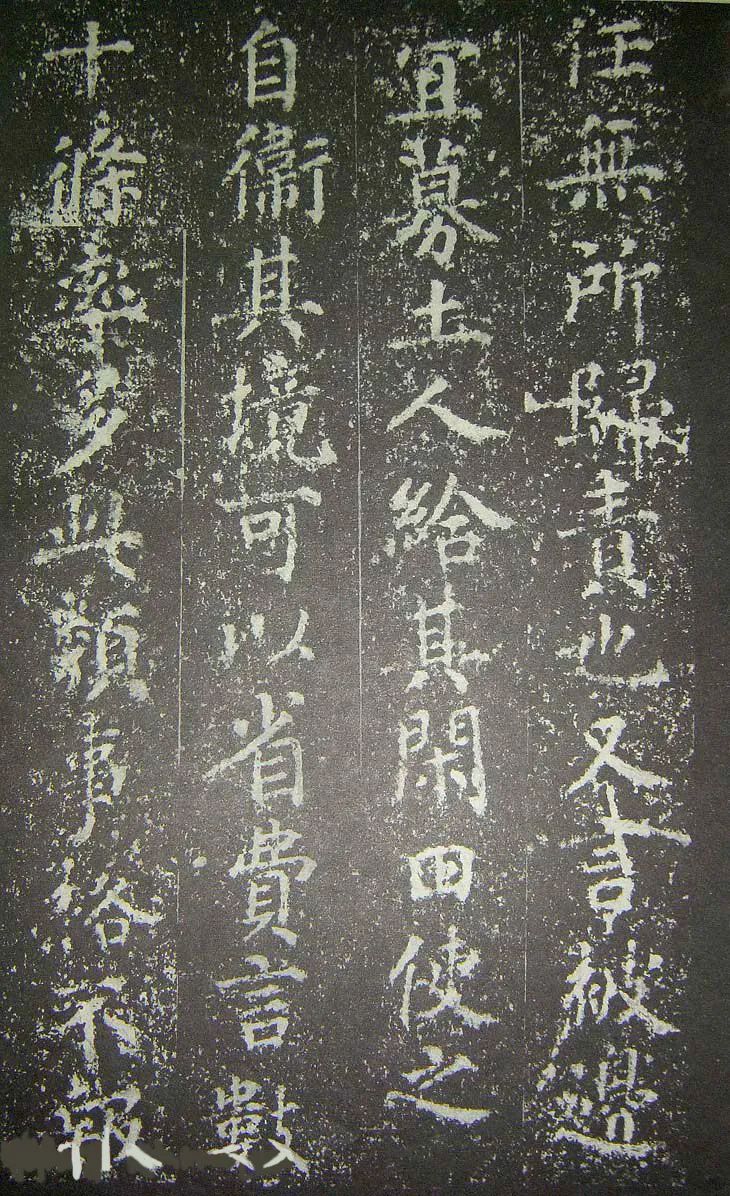 任無所歸責也又言被邊
宜募土人給其閑田使之
自衛其境可以省費言數
十條率多此類事格不報